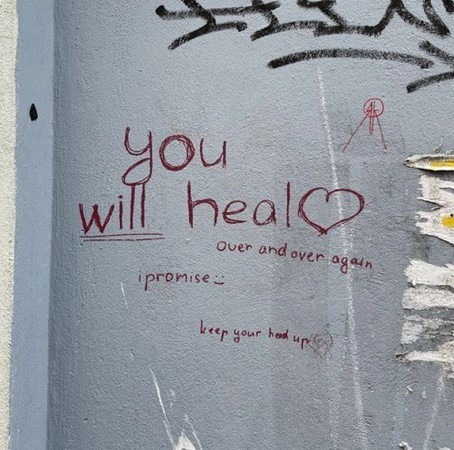 you
will heal♡
over and over again
i promise :)
keep your head up